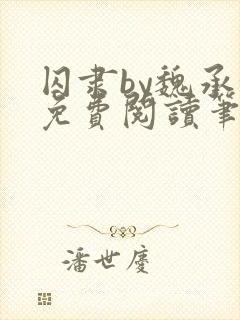 囚肃by魏承
免費閱讀筆
潘世慶